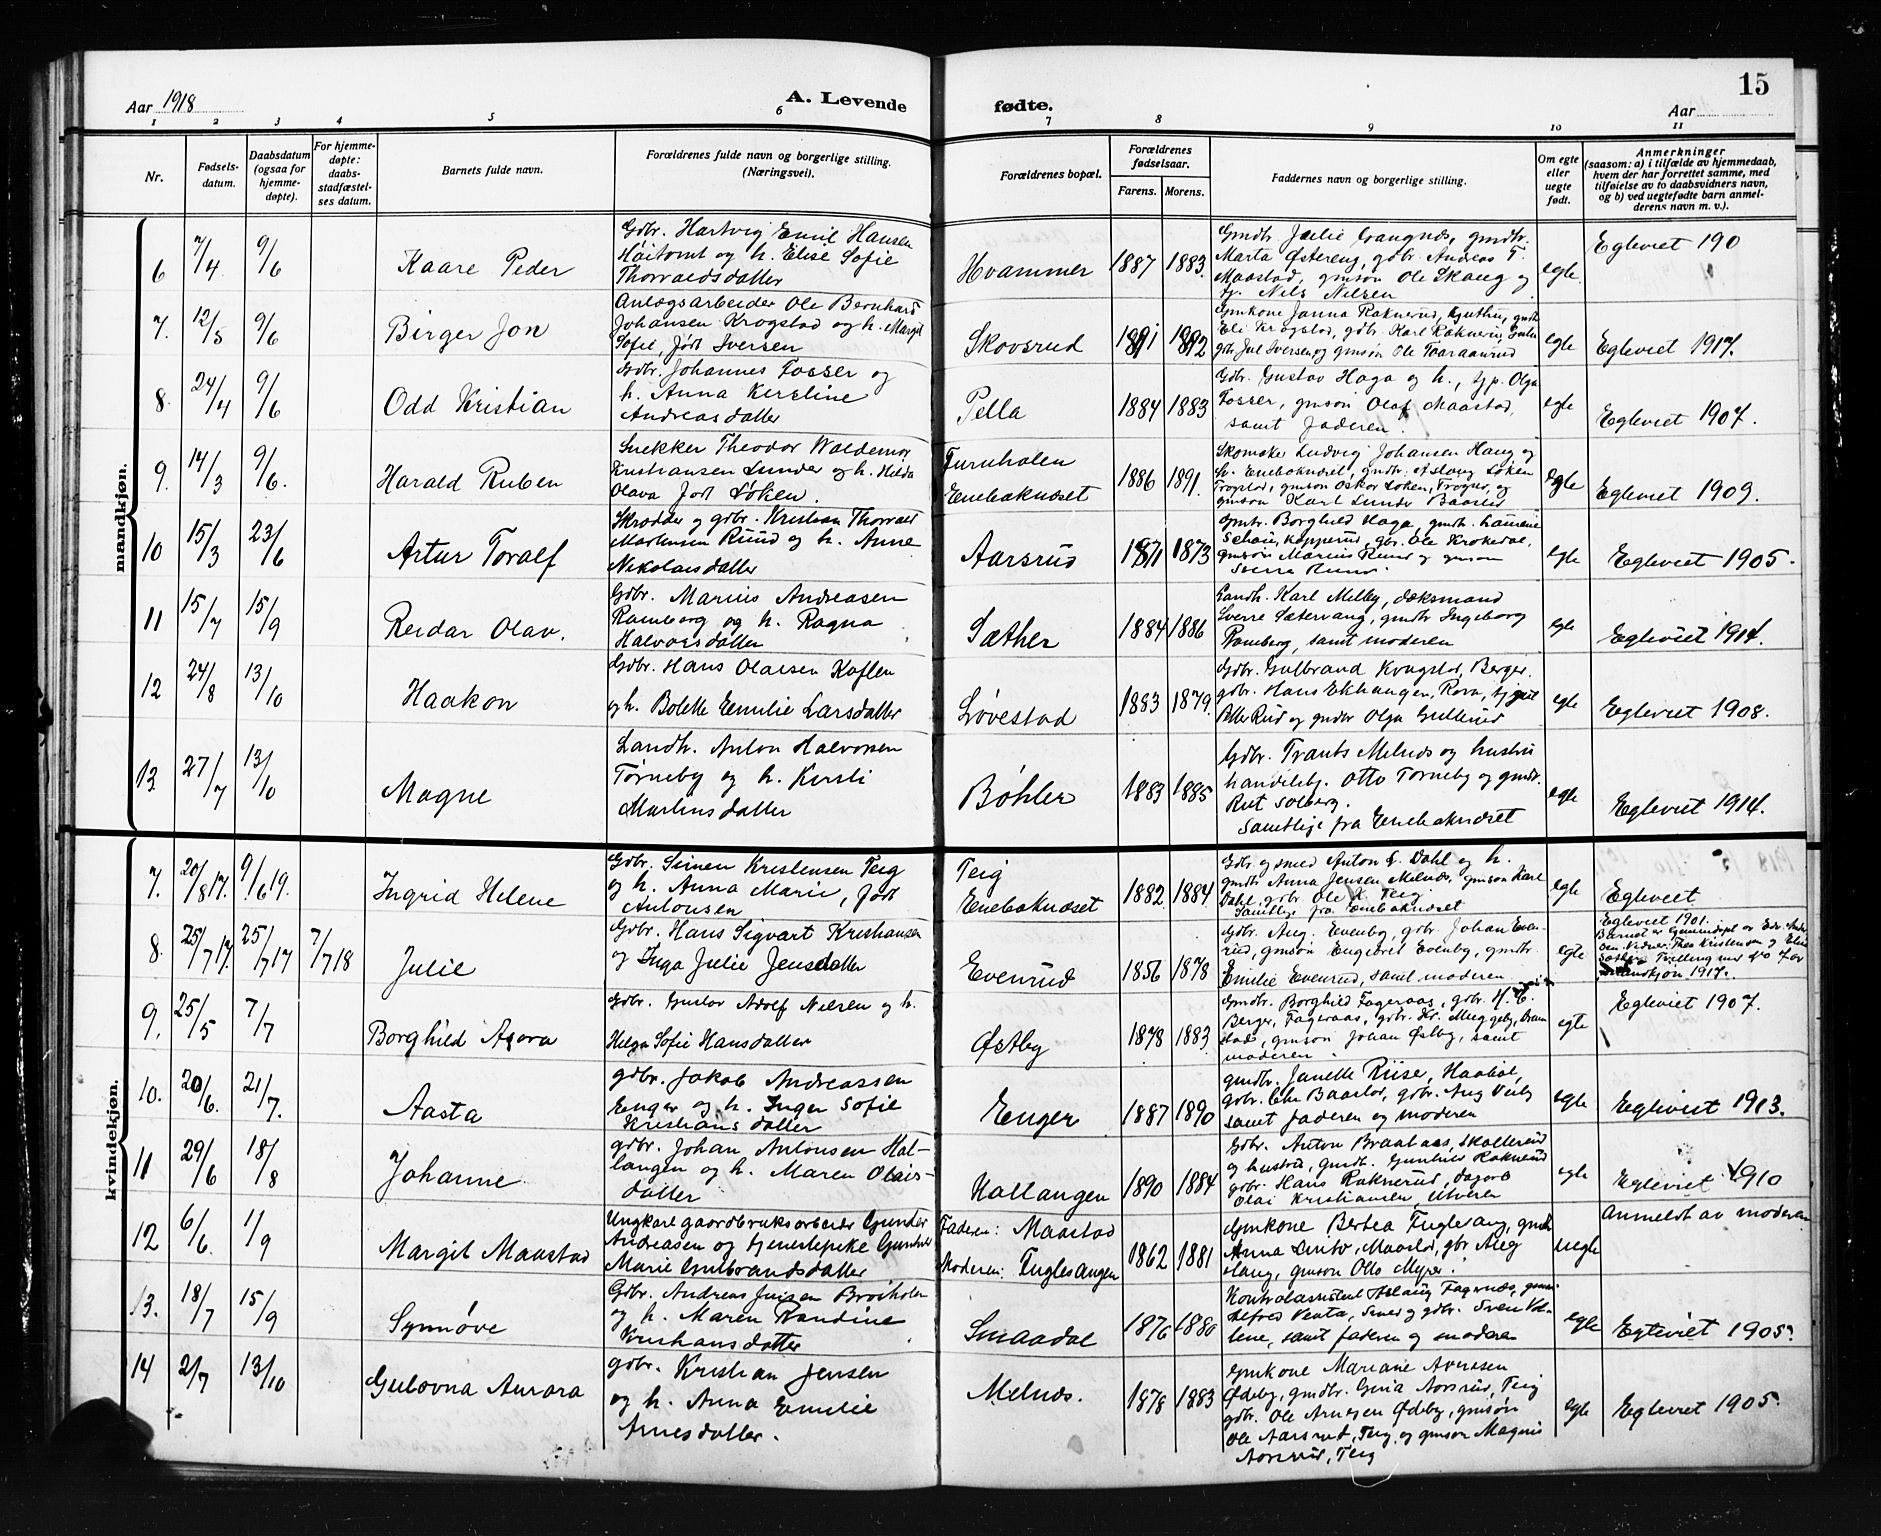 Aar 1918 A. Levende fødte. Aar 15
1 2 3 4 5 6 7 8 9 10 11
Nr. Fødsels-datum. Daabsdatum (ogsaa for hjemme-døpte). For hjemme-døpte: daabs-stadfæstel-ses datum. Barnets fulde navn. Forældrenes fulde navn og borgerlige stilling. (Næringsvei). Forældrenes bopæl. Forældrenes fødselsaar. Farens. Morens. Faddernes navn og borgerlige stilling. Om egte eller uegte født. Anmerkninger (saasom: a) i tilfælde av hjemmedaab, hvem der har forrettet samme, med tilføielse av to daabsvidners navn, og b) ved uegtefødte barn anmel-derens navn m. v.).
mandkjøn.
6 7/4 9/6 Kaare Peder
Gdbr. Hartvig Emil Hansen
Høitomt og h. Elise Sofie
Thorvaldsdatter
Hvammer 1887 1883
Marta Østereng, gdbr. Andreas T.
Maastad, gmsøn Ole Skaug og
tj. Nils Nilsen
egte Egteviet 190
7. 12/5 9/6 Birger Jon
Anlægsarbeider Ole Bernhard
Johansen Krogstad og h. Margit
Sofie, født Iversen
Skovsrud 1891 1892
Eli Krogstad, gdbr. Karl Raknerud
gbr. Jul Iversen og gmsøn Ole Taaraanrud
egte Egteviet 1917.
8. 24/4 9/6 Odd Kristian
Gdbr. Johannes Fosser og
h. Anna Kirstine
Andreasdatter
Pella 1884 1883
Gdbr. Gustav Haga og h., tjp. Olga
Fosser, gmsøn Olaf Maastad,
samt faderen.
egte Egteviet 1907.
9. 14/3 9/6. Harald Ruben
Snekker Theodor Waldemar
Kristiansen Lunder og h. Hilda
Olava født Løken.
Furuholen
Enebaknæset 1886 1891.
Skomaker Ludvig Johansen Haug og
h. Enebaknæset, gmdbr. Aslaug Løken
Trogstad, gmsøn Oskar Løken, Trogst., og
gmsøn Karl Lunde Baastad
egte Egteviet 1909.
10 15/3 23/6 Artur Toralf
Skrædder og gdbr. Kristian Thorvald
Martinsen Ruud og h. Anne
Nikolaisdatter
Aarsrud 1871 1873
gmdbr. Borghild Haga, gmdb. Laurine
gbr. Ole Krokedal,
gmsøn Marius Ruud og gmsøn
Sverre Ruud.
egte Egteviet 1905.
11 15/7 15/9 Reidar Olav.
Gdbr. Marius Andreasen
Ramberg og h. Ragna
Halvorsdatter
Sæther 1884 1886
Landh. Karl Melby, dæksmand
Sverre Sætervang, gmdbr Ingeborg
Ramberg, samt moderen
egte Egteviet 1914.
12 24/8 13/10 Haakon
Gdbr. Hans Olaisen Koflen
og h. Bolette Emilie Larsdatter
Løvestad 1883 1879.
Gdbr. Gulbrand Krogstad, Berger,
gdbr. Hans Ekhaugen, Rova, tjpik
og gmdbr Olga Gullerud
egte Egteviet 1908.
13. 27/7 13/10 Magne
Landh. Anton Halvorsen
Tørneby og h. Kirsti
Martinsdatter
Bøhler 1883 1885
Gdbr. Trants Melnæs og hustru
handelsbj. Otto Tørneby og gmdbr.
Rut Solberg.
Samtlige fra Enebaknæset
egte Egteviet 1914.
kvindekjøn.
7. 20/8 17. 9/6 19. Ingrid Helene
Gdbr. Simen Kristensen Teig
og h. Anna Marie, født
Antonsen
Teig
Enebaknæset 1882 1884
Gdbr og smed Anton E. Dahl og h.
gmdbr Anna Jensen Melnæs, gmsøn Karl
Dahl, gdbr. Ole K. Teig
Samtlige fra Enebaknæset
egte Egteviet
8. 25/7 17. 25/7 17 7/7 18 Julie
Gdbr. Hans Sigvart Kristiansen
og Inga Julie Jensdatter
Evenrud 1856 1878
Gdbr. Aug. Evenby, gdbr Johan Even-
rud, gmsøn Engebret Evenby, gmdbr.
Emilie Evenrud, samt moderen
egte Egteviet 1901.
Barnet er hjemmedøpt av
Tvilling med No 7 av
mandkjøn 1917.
9. 25/5 7/7 Borghild Agora
Gdbr. Gustav Adolf Nilsen og h.
Helga Sofie Hansdatter
Østby 1878 1883
Gmdbr. Borghild Fageraas, gdbr. H. C.
Berger, Fageraas, gdbr. Kr. Muggeby, Dram
stad, gmsøn Johan Østby, samt
moderen
egte Egteviet 1907.
10. 20/6. 21/7. Aasta
gdbr. Jakob Andreassen
Enger og h. Inger Sofie
Kristiansdatter
Enger 1887 1890
gmdbr. Janette Riise, Haabøl,
gdbr. Chr Baastad, gdbr. Aug Viby
samt faderen og moderen
egte Egteviet 1913.
11 29/6 18/8 Johanne
gdbr. Johan Antonsen Hal-
langen og h. Maren Olais-
datter
Hallangen 1890 1884
Gdbr. Anton Braataas, Skallerud
og hustru, gmdb. Gunhild Raknerud
gdbr. Hans Raknerud, dagarb
Olai Kristiansen, Utveien
egte Egteviet 1910
12 6/6. 1/9 Margit Maastad
Ungkarl gaardbruksarbeider Gunder
Andreasen og tjenestepike Gunhild
Marie Gulbrandsdatter
Faderen: Maastad
Moderen: Fuglesangen 1862 1881
Gmkone Bertea Fuglesang, gmdb
Anna Linto, Maastad, gbr. Aug
Haug, gmsøn Otto Myrer.
uegte Anmeldt av moderen
13. 18/7 15/9 Synnøve
Gdbr. Andreas Jensen Braaholen
og h. Maren Randine
Kristiansdatter
Smaadal 1876 1880
Kontrolassistent Aslaug Fagernæs, gmsøn
Alfred Venta, Smed og gdbr. Sven Vol-
lene, samt faderen og moderen
egte Egteviet 1905.
14 2/7 13/10 Gulovna Aurora
gdbr. Kristian Jensen
og h. Anna Emilie
Arnesdatter.
Melnæs. 1878 1883
Gmkone Mariane Arnesen
Ødeby, gmdbr. Gina Aarsrud, Teig
gdbr. Ole Arnesen Ødeby, gmsøn
Ole Aarsrud, Teig, og gmsøn Magnus
Aarsrud, Teig
egte Egteviet 1905.